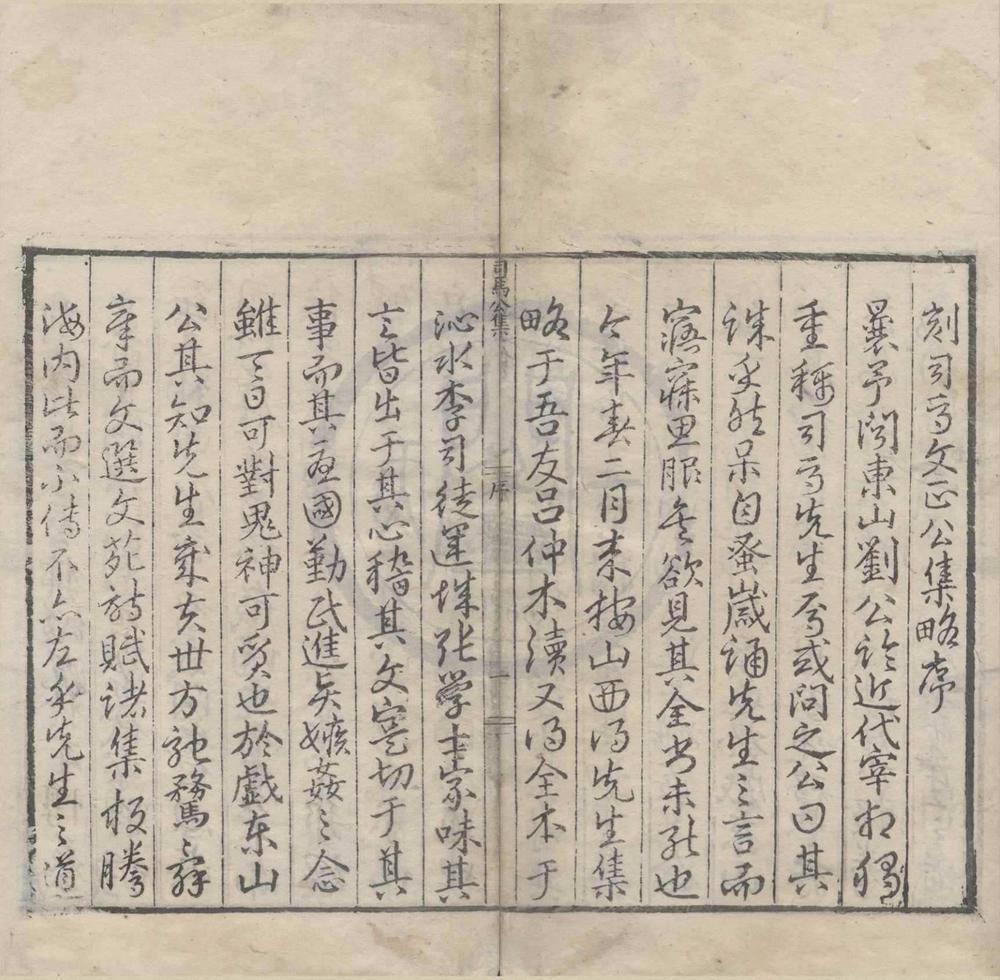 刻司馬文正公集略序
曩予聞東山劉公論近代宰相獨
重稱司馬先生焉或問之公曰其
誠乎然某自蚤歲誦先生之言而
寤寐思服每欲見其全書未能也
今年春二月來按山西得先生集
略于吾友呂仲木續又得全本于
司馬公集
序
一
沁水李司徒運城張學士家味其
言皆出于其心稽其文寔切于其
事而其為國勤民進矣嫉姦之念
雖天日可對鬼神可質也於戲東山
公其知先生哉夫世方馳騖辭
章而文選文苑詩賦諸集板騰
海內此而不傳不亦左乎先生之道